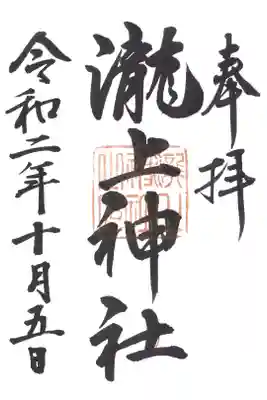 奉拝
瀧上神社
令和二年十月五日